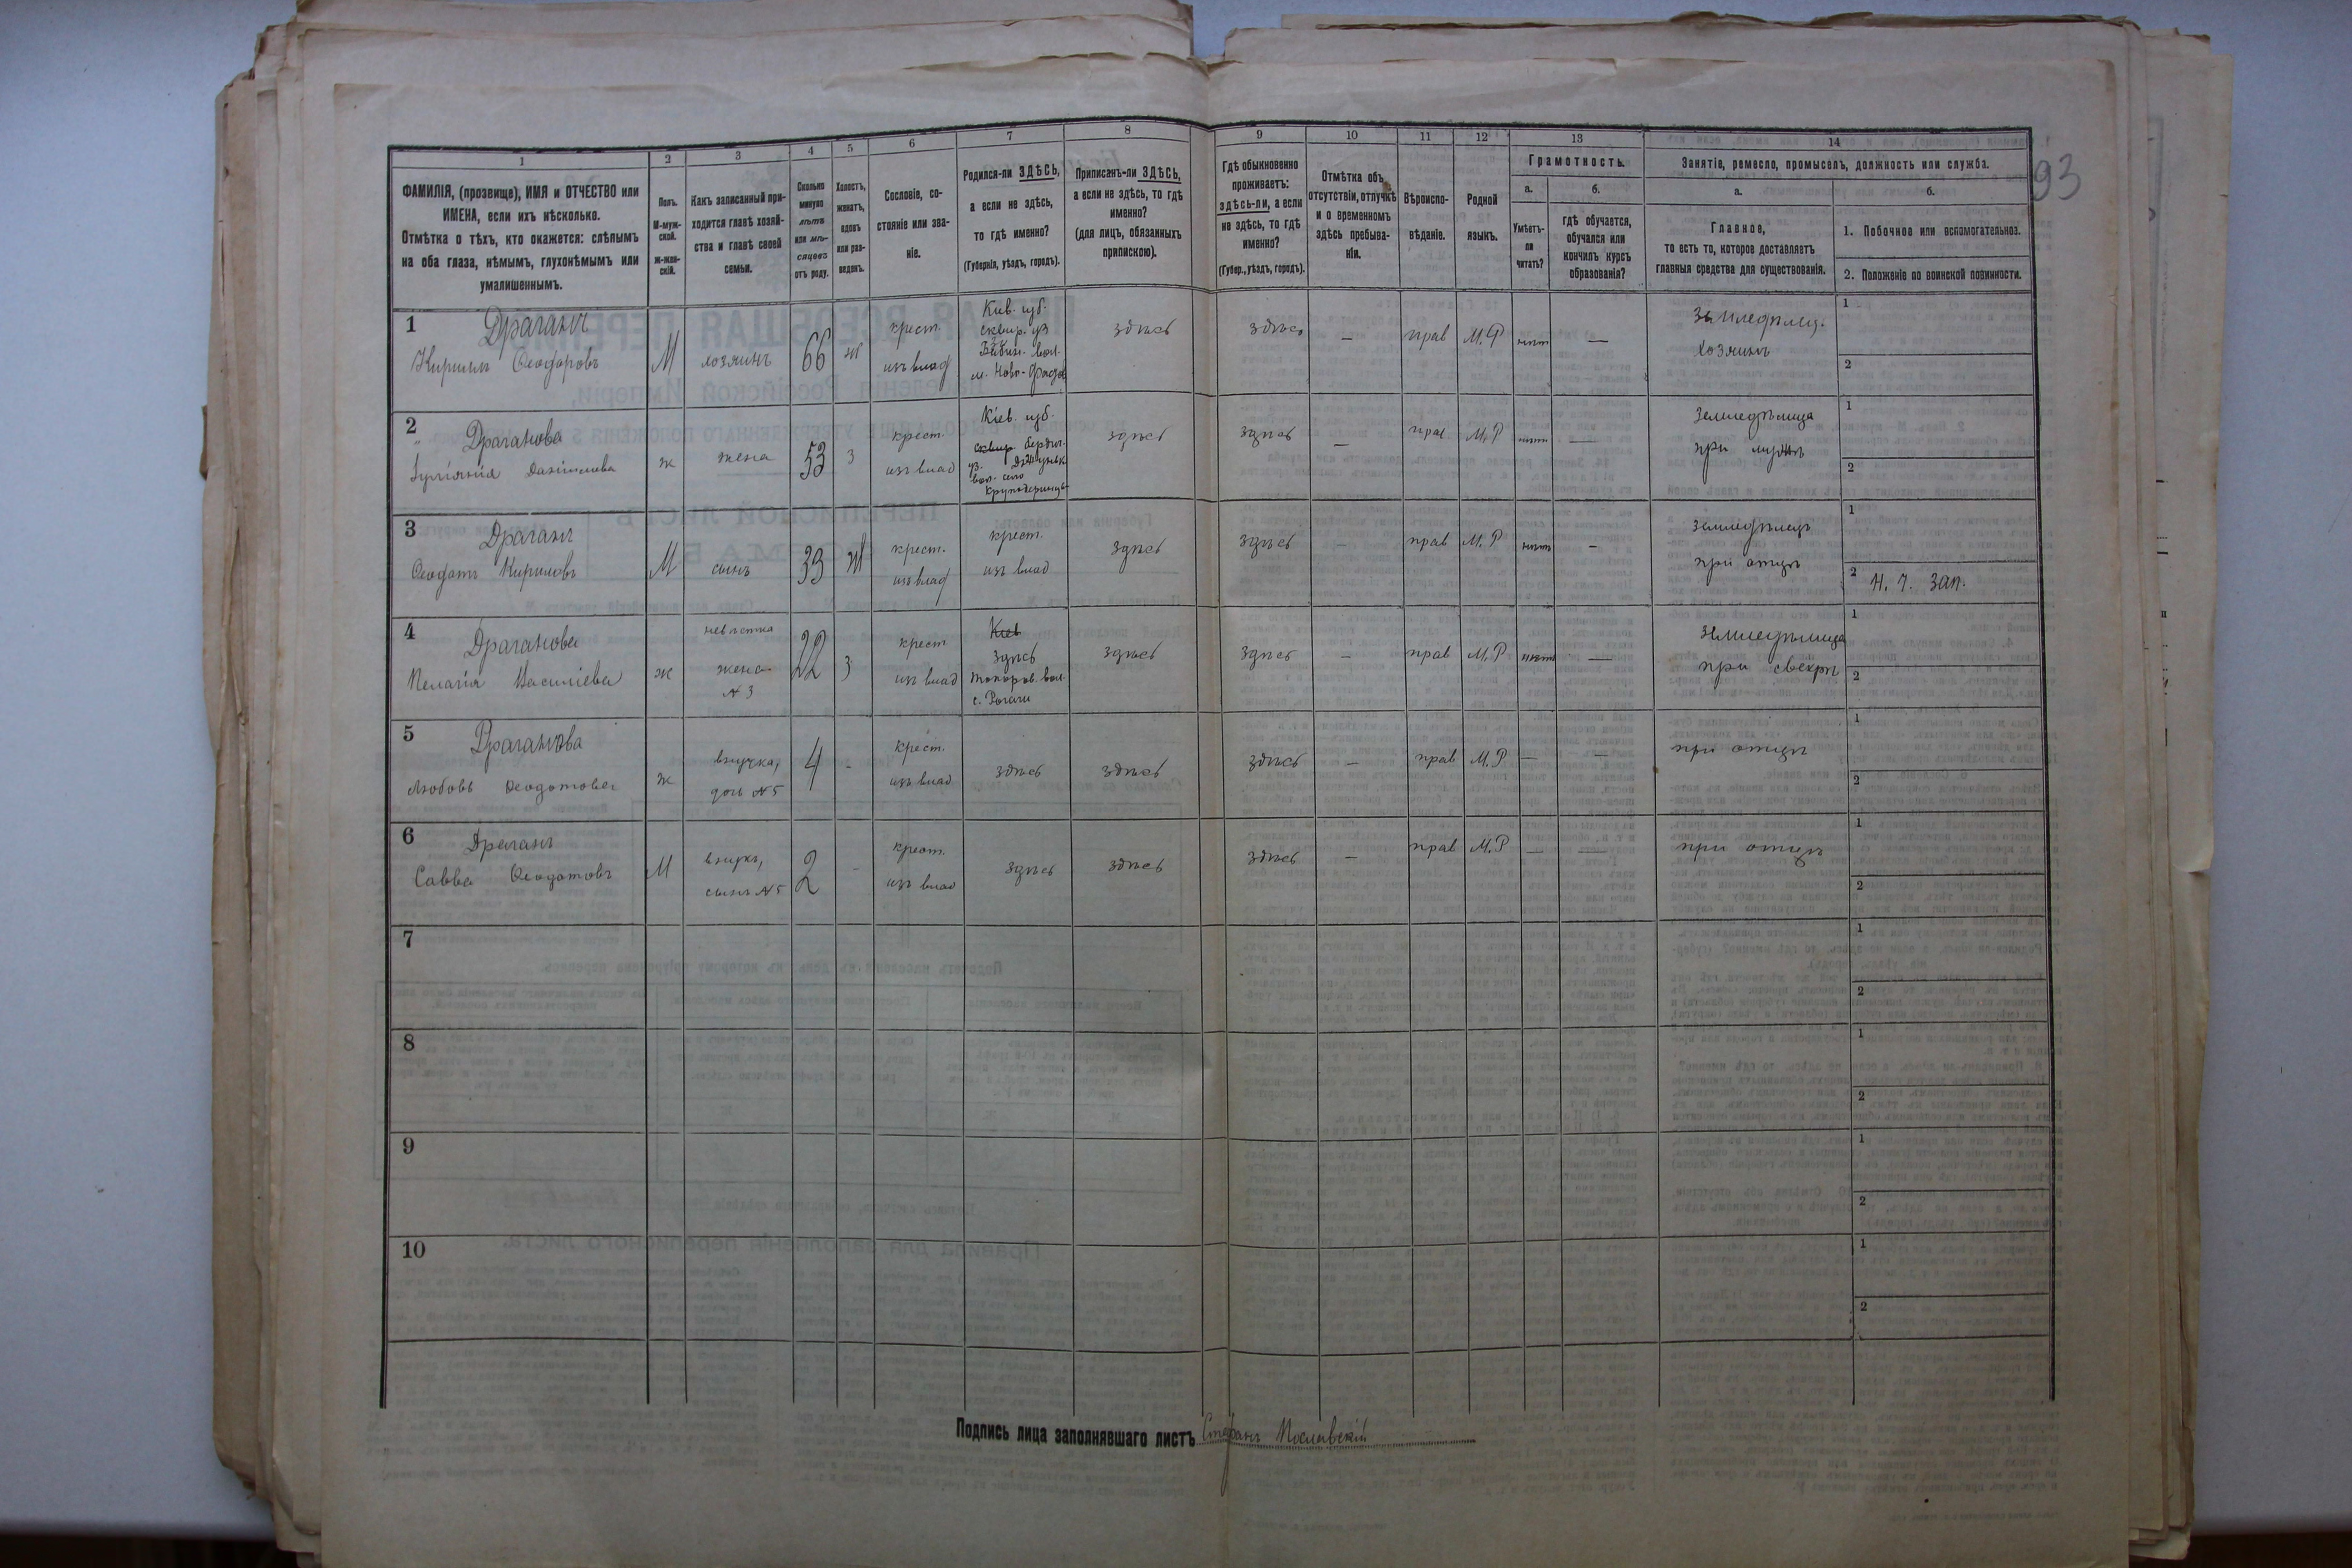 93
1
2
3
4
5
6
7
8
9
10
11
12
13
14
ФАМИЛІЯ, (прозвище), ИМЯ и ОТЧЕСТВО или
ИМЕНА, если ихъ нѣсколько.
Отмѣтка о тѣхъ, кто окажется: слѣпымъ
на оба глаза, нѣмымъ, глухонѣмымъ или
умалишеннымъ.
Полъ.
М-муж-
ской.
Ж-жен-
скій.
Какъ записанный при-
ходится главѣ хозяй-
ства и главѣ своей
семьи.
Сколько
минуло
лѣтъ
или мѣ-
сяцевъ
отъ роду.
Холостъ,
женатъ,
вдовъ
или раз-
веденъ.
Сословіе, со-
стояніе или зва-
ніе.
Родился-ли ЗДѢСЬ,
а если не здѣсь,
то гдѣ именно?
(Губернія, уѣздъ, городъ).
Приписанъ-ли ЗДѢСЬ,
а если не здѣсь, то гдѣ
именно?
(для лицъ, обязанныхъ
припискою).
Гдѣ обыкновенно
проживаетъ:
здѣсь-ли, а если
не здѣсь, то гдѣ
именно?
(Губер., уѣздъ, городъ).
Отмѣтка объ
отсутствіи, отлучкѣ
и о временномъ
здѣсь пребыва-
ніи.
Вѣроиспо-
вѣданіе.
Родной
языкъ.
Грамотность.
а.
Умѣетъ-
ли
читать?
б.
гдѣ обучается,
обучался или
кончилъ курсъ
образованія?
Занятіе, ремесло, промыселъ, должность или служба.
а.
Главное,
то есть то, которое доставляетъ
главныя средства для существованія.
б.
1. Побочное или вспомогательноз.
2. Положеніе по воинской повинности.
1
Драганъ
Кирилъ Ѳеодоровъ
М
хозяинъ
66
ж
крест.
изъ влад
Кіев. губ.
сквир. уз
вол.
м. Ново-
здѣсь
здѣсь
—
прав
М. Р
нѣтъ
—
Земледѣлец.
хозяинъ
1
2
2
Драганова
Данiилова
ж
жена
53
з
крест.
изъ влад
Кіев. губ.
сквир Бердич.
уз.
вол. село
здѣсь
здѣсь
—
прав
М. Р
нѣтъ
—
Земледѣлица
при мужѣ
1
2
3
Драганъ
Ѳеодотъ Кириловъ
М
сынъ
33
ж
крест.
изъ влад
крест.
изъ влад
здѣсь
здѣсь
—
прав
М. Р
нѣтъ
—
земледѣлецъ
при отцѣ
1
2 Н. Ч. Зап.
4
Драганова
Пелагія Василіева
ж
невѣстка
жена
№ 3
22
з
крест
изъ влад
Кіев
здѣсь
Топоров. вол.
с. Рогачи
здѣсь
здѣсь
—
прав
М. Р
нѣтъ
—
земледѣлица
при свекрѣ
1
2
5
Драганова
Любовь Ѳеодотова
ж
внучка,
дочь №5
4
-
крест.
изъ влад
здѣсь
здѣсь
здѣсь
—
прав
М. Р
—
—
при отцѣ
1
2
6
Драганъ
Савва Ѳеодотовъ
М
внукъ,
сынъ №5
2
-
крест.
изъ влад
здѣсь
здѣсь
здѣсь
—
прав
М. Р
—
—
при отцѣ
1
2
7
1
2
8
1
2
9
1
2
10
1
2
Подпись лица заполнявшаго листъ Стефанъ